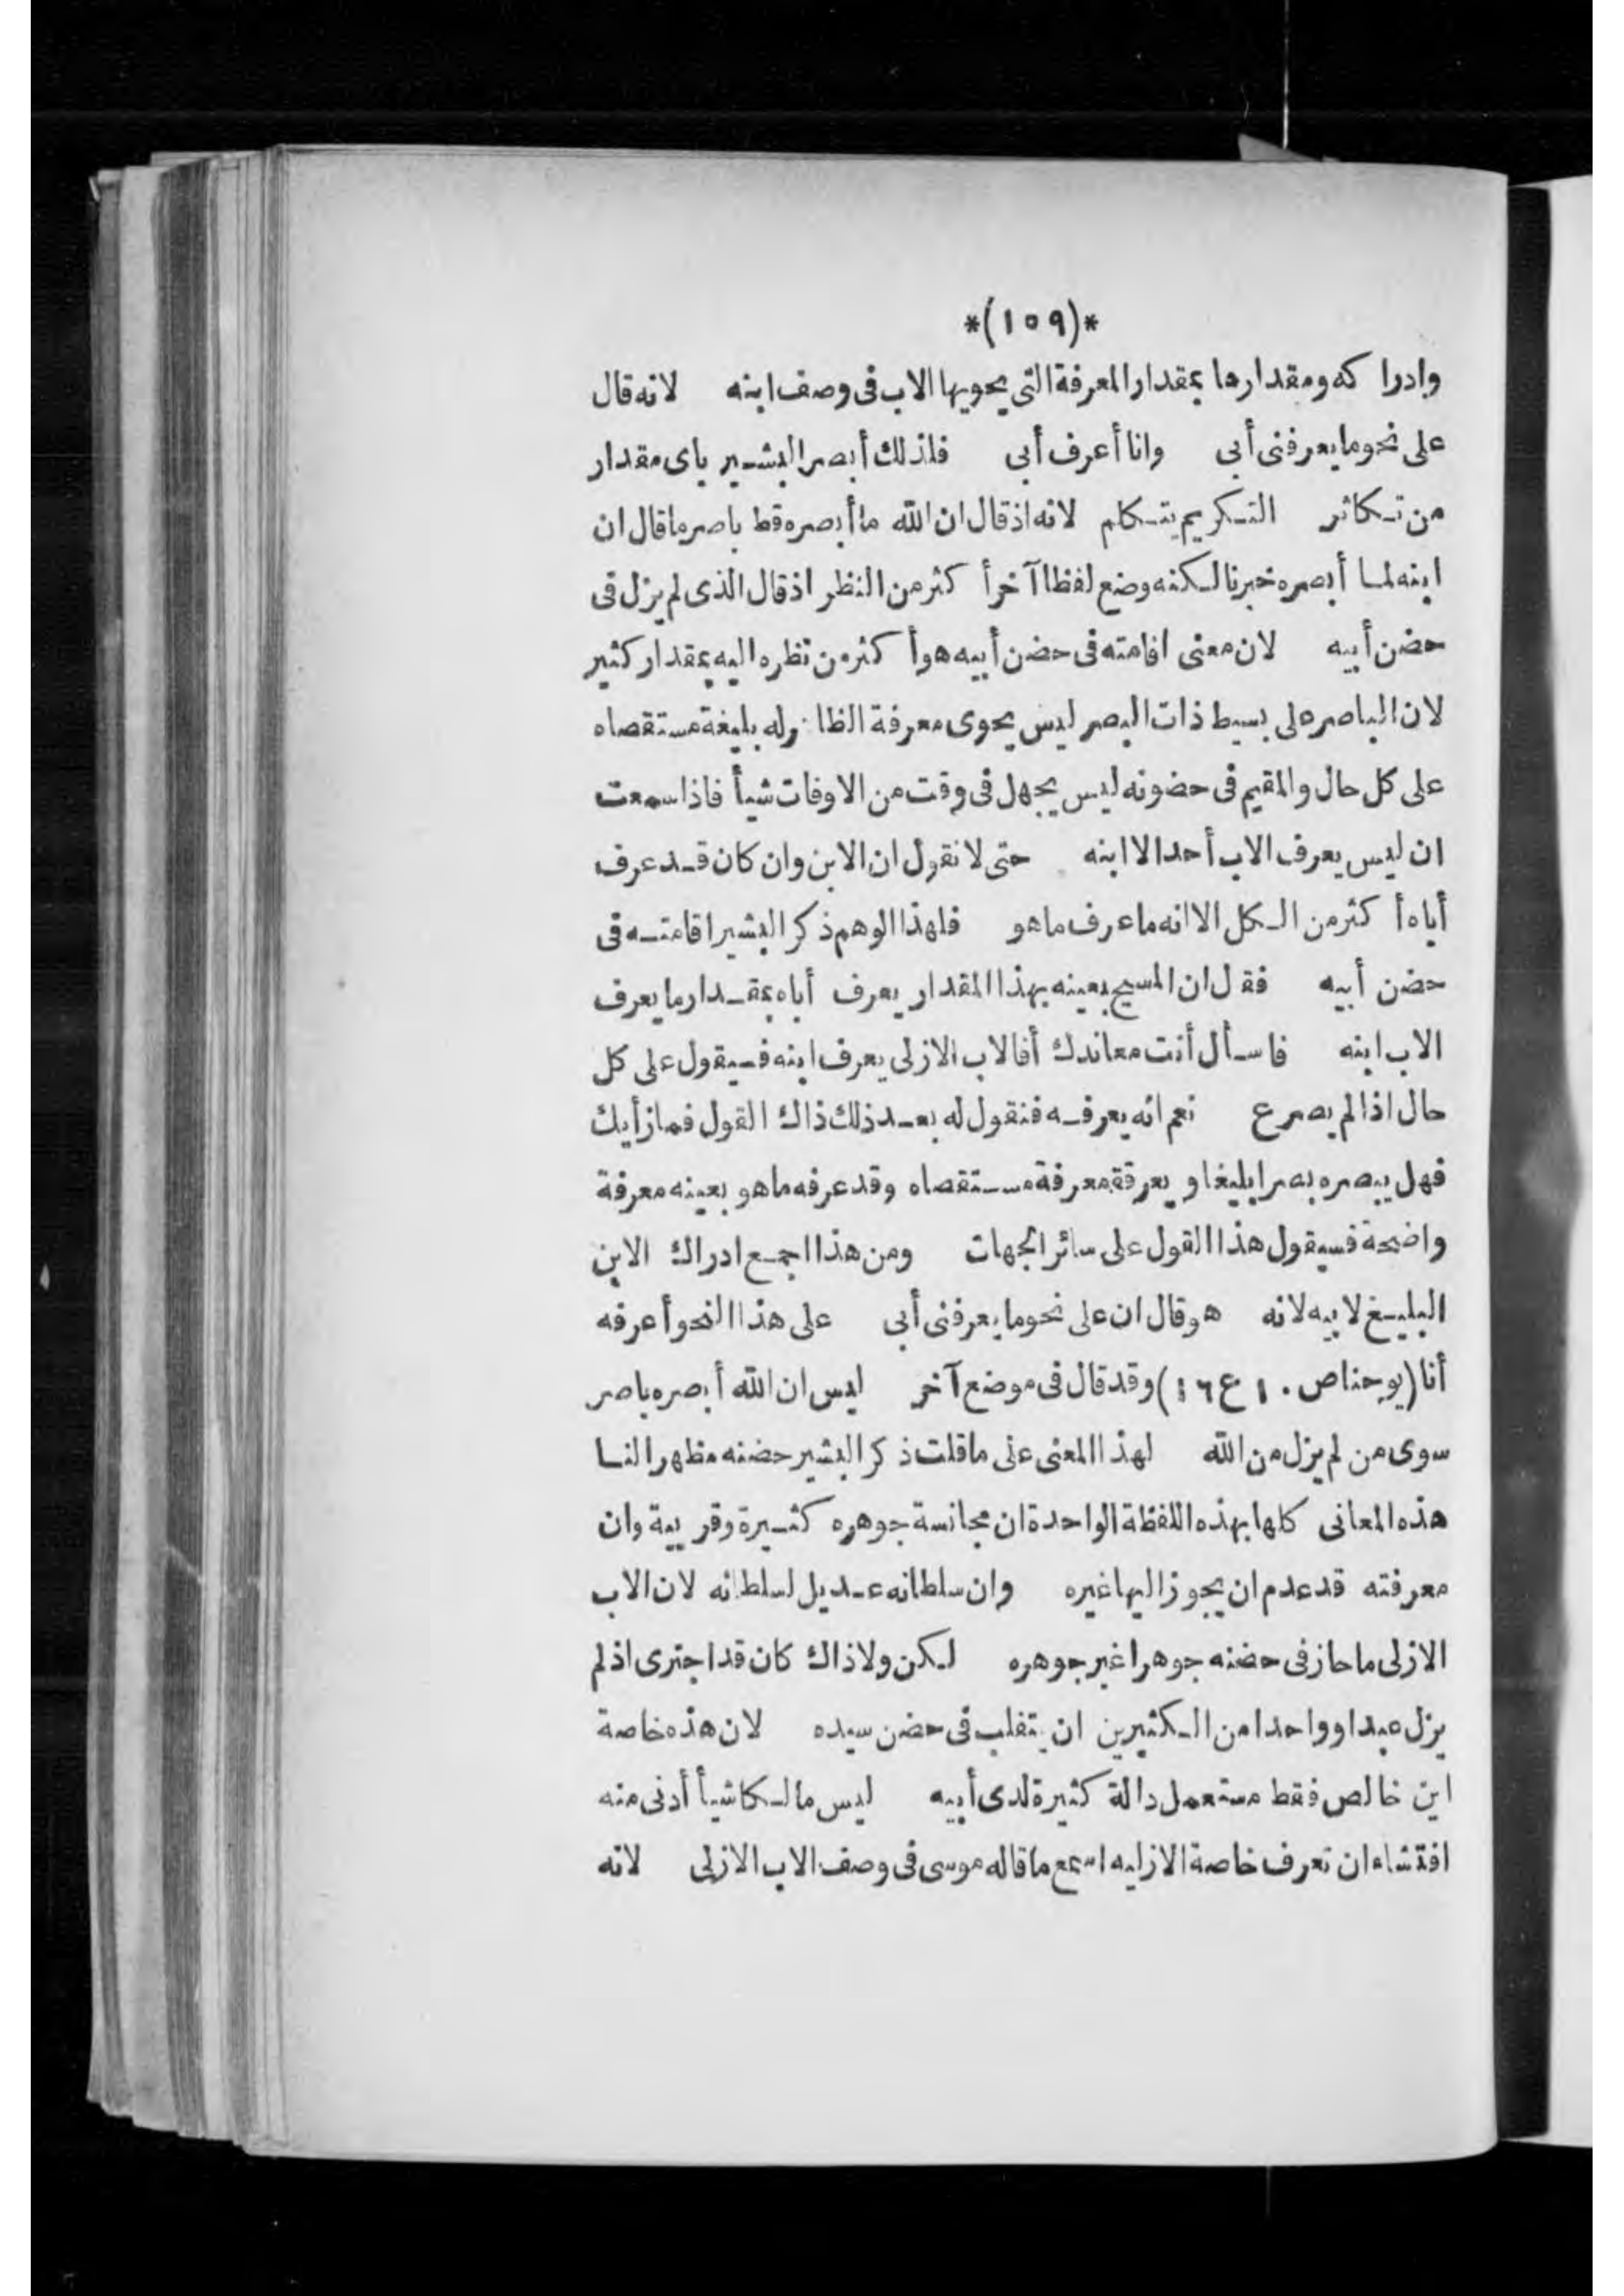 *(١٥٩)*
وادراكه ومقدارها بمقدار المعرفة التى يحويها الاب فى وصف ابنه لانه قال
على نحو ما يعرفنى أبى وانا أعرف أبى فلذلك أبصر البشير باى مقدار
من تكاثر التكريم يتكلم لانه اذ قال ان الله ما أبصره قط باصر ما قال ان
ابنه لما أبصره خبرنا لكنه وضع لفظا آخر أكثر من النظر اذ قال الذى لم يزل فى
حضن أبيه لان معنى اقامته فى حضن أبيه هو أكثر من نظره اليه بمقدار كثير
لان الباصر على بسيط ذات البصر ليس يحوى معرفة الظاهر له بليغة مستقصاه
على كل حال والمقيم فى حضونه ليس يجهل فى وقت من الاوقات شيأ فاذا سمعت
ان ليس يعرف الاب أحد الا ابنه حتى لا نقول ان الابن وان كان قد عرف
أباه أكثر من الكل الا انه ما عرف ما هو فلهذا الوهم ذكر البشير اقامته فى
حضن أبيه فقل ان المسيح بعينه بهذا المقدار يعرف أباه بمقدار ما يعرف
الاب ابنه فاسأل أنت معاندك أفالاب الازلى يعرف ابنه فسيقول على كل
حال اذا لم يصرع نعم انه يعرفه فنقول له بعد ذلك ذاك القول فما زأيك
فهل يبصره بصرا بليغا و يعرفة معرفة مستقصاه وقد عرفه ما هو بعينه معرفة
واضحة فسيقول هذا القول على سائر الجهات ومن هذا اجمع ادراك الابن
البليغ لابيه لانه هو قال ان على نحو ما يعرفنى أبى على هذا النحو أعرفه
أنا (يوحنا ص ١٠ ع ١٦) وقد قال فى موضع آخر ليس ان الله أبصره باصر
سوى من لم يزل من الله لهذا المعنى على ما قلت ذكر البشير حضنه مظهرا لنا
هذه المعانى كلها بهذه اللفظة الواحدة ان مجانسة جوهره كثيرة وقريبة وان
معرفته قد عدم ان يجوز اليها غيره وان سلطانه عديل لسلطانه لان الاب
الازلى ما حاز فى حضنه جوهرا غير جوهره لكن ولا ذاك كان قد اجترى اذ لم
يزل عبدا وواحدا من الكثيرين ان يتقلب فى حضن سيده لان هذه خاصة
ابن خالص فقط مستعمل دالة كثيرة لدى أبيه ليس مالكا شيأ أدنى منه
افتشاء ان تعرف خاصة الازليه اسمع ما قاله موسى فى وصف الاب الازلى لانه